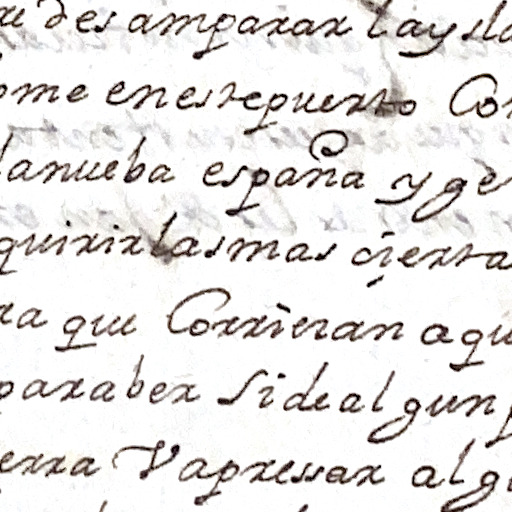 desamparar la ysla
ome en este puerto Con
la nueba españa y ge
quirir las mas çierta
ra que Corrieran aqu
para ber si de algun p
erra Vapressar algu